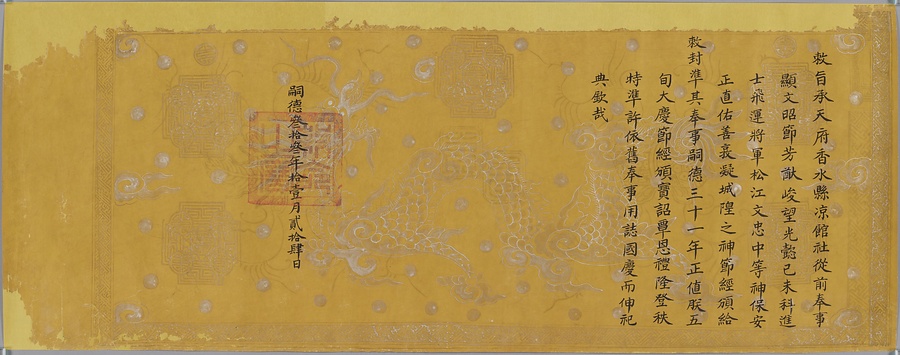 敕旨承天府香水縣凉館社從前奉事
顯文昭節芳猷峻望光懿己未科進
士飛運將軍松江文忠中等神保安
正直佑善嘉凝城隍之神節經頒給
敕封準其奉事嗣德三十一年正值朕五
旬大慶節經頒寶詔覃恩禮隆登秩
特準許依舊奉事用誌國慶而伸祀
典欽哉
嗣德叁拾叁年拾壹月貳拾肆日